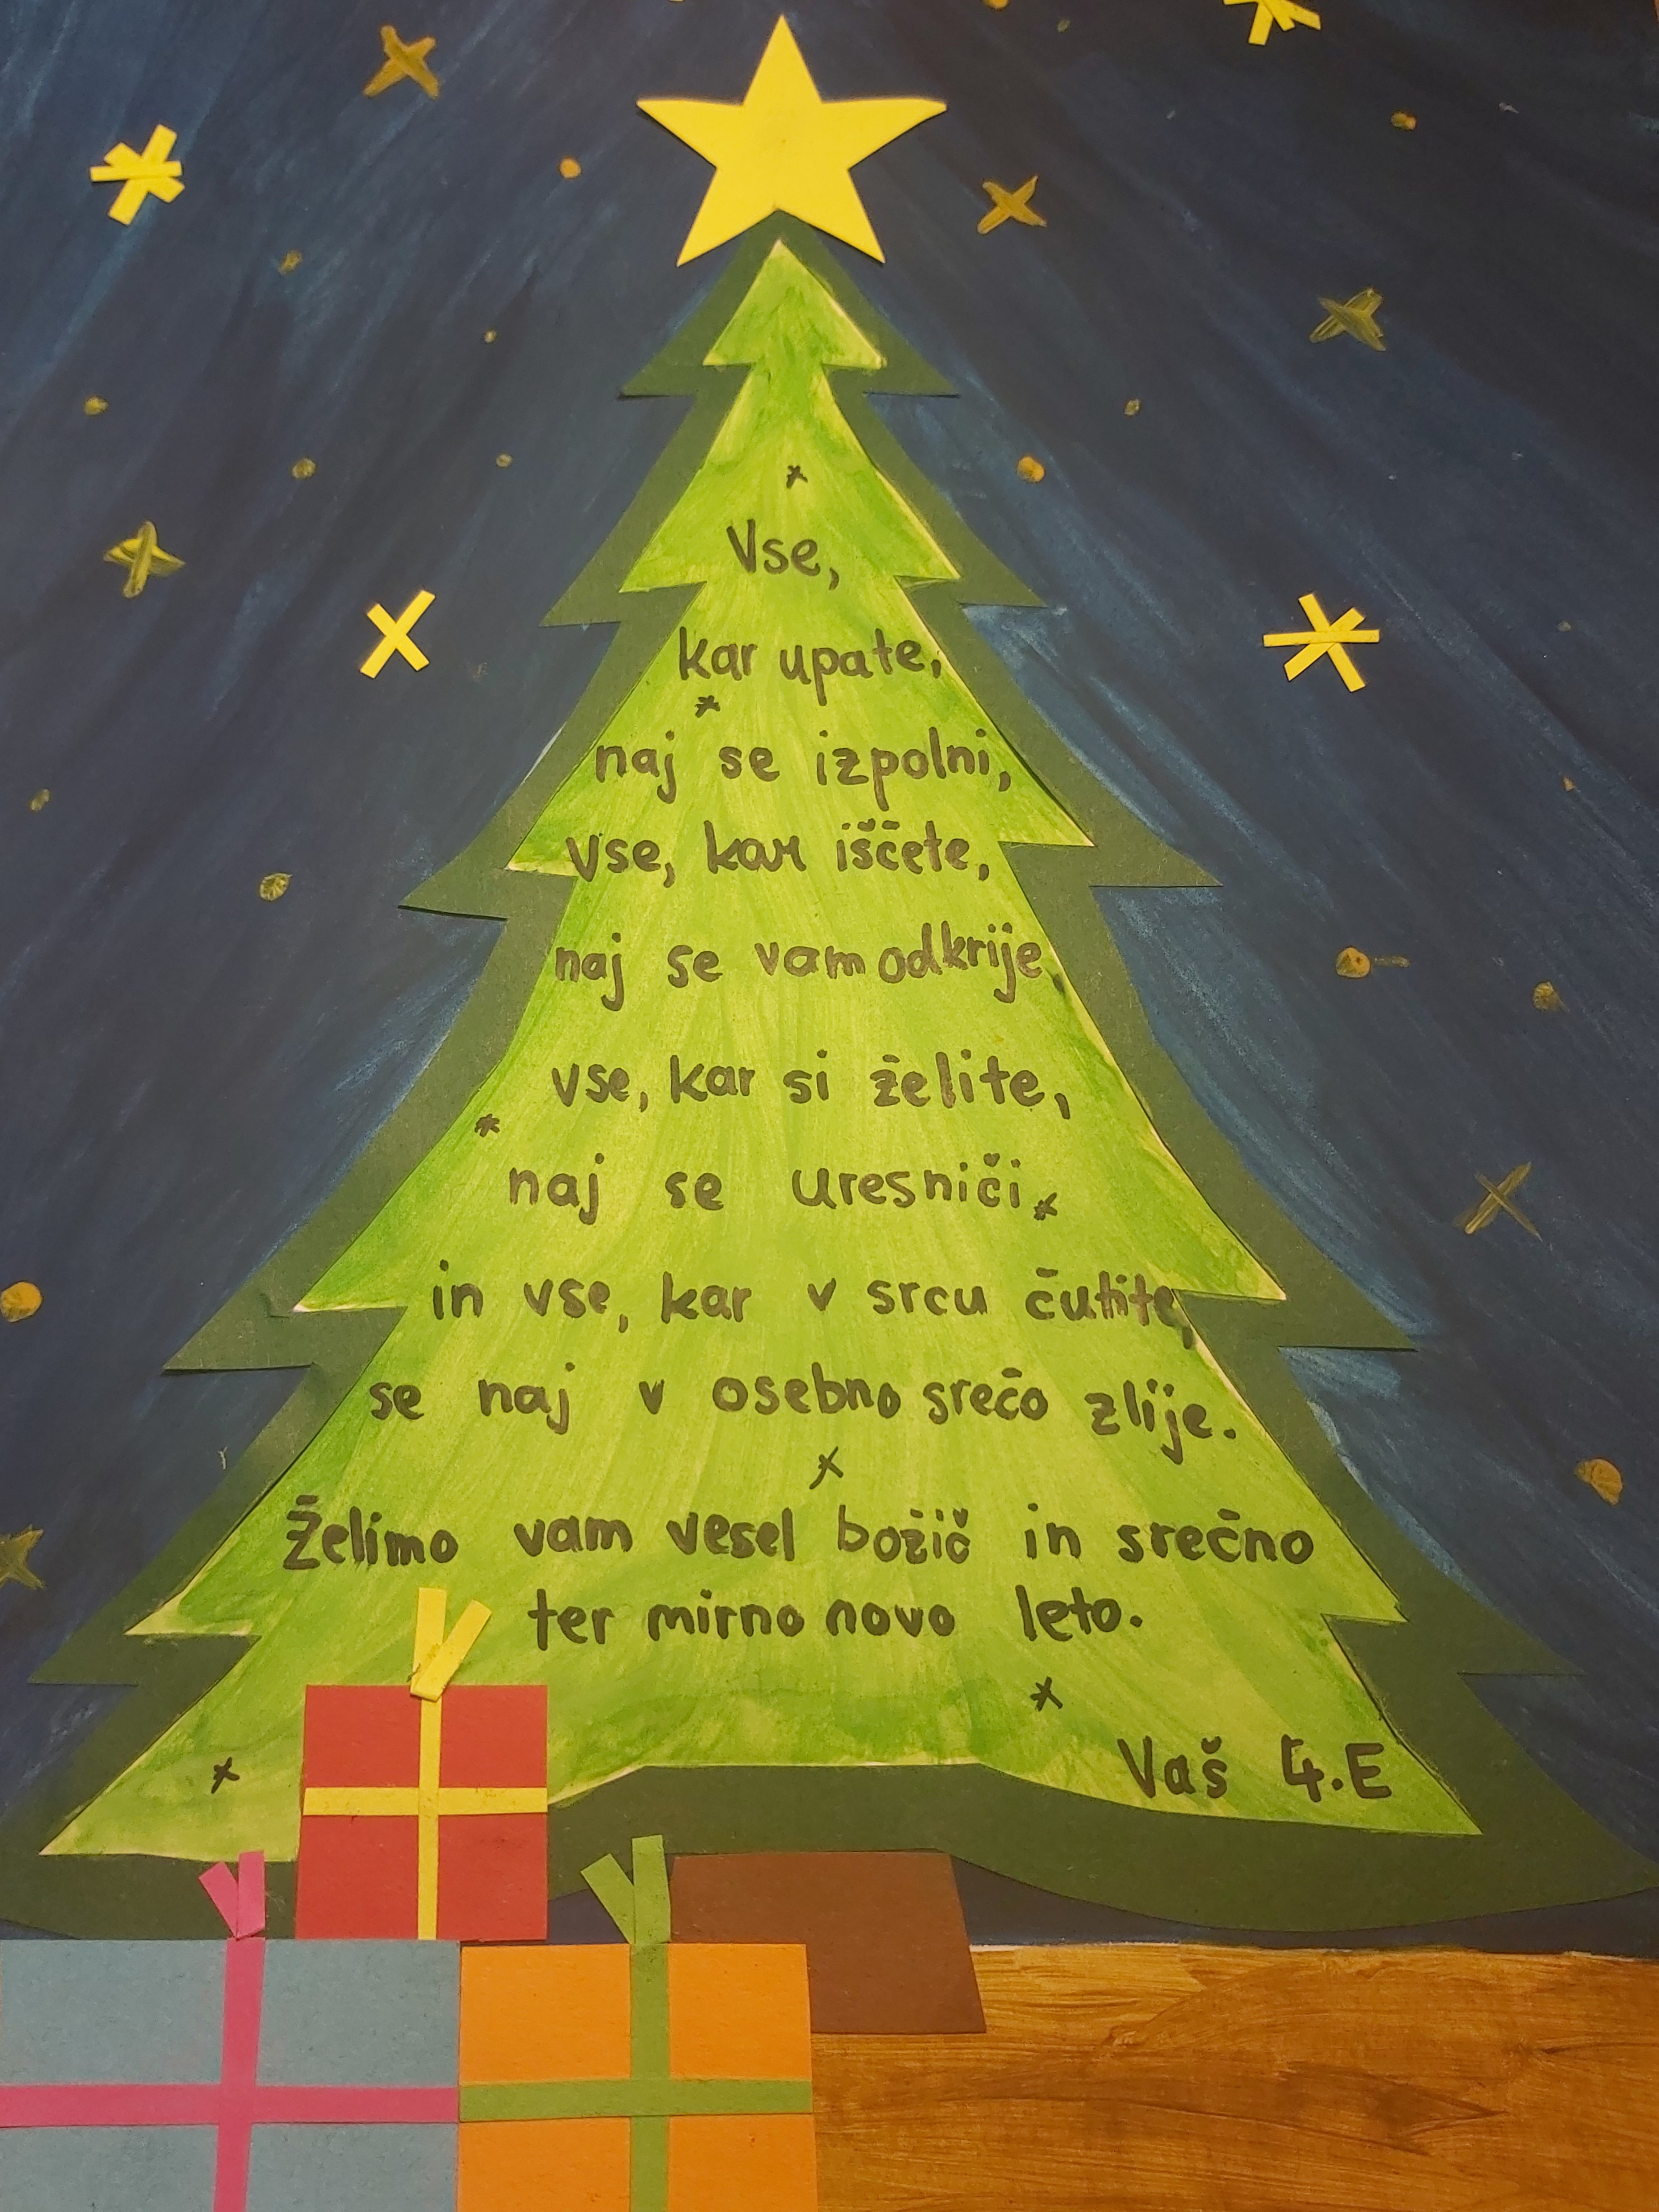 Vse,
kar upate,
naj se izpolni,
vse, kar iščete,
naj se vam odkrije,
vse, kar si želite,
naj se uresniči
in vse, kar v srcu čutite,
se naj v osebno srečo zlije.
Želimo vam vesel božič in srečno
ter mirno novo leto.
Vaš 4.E